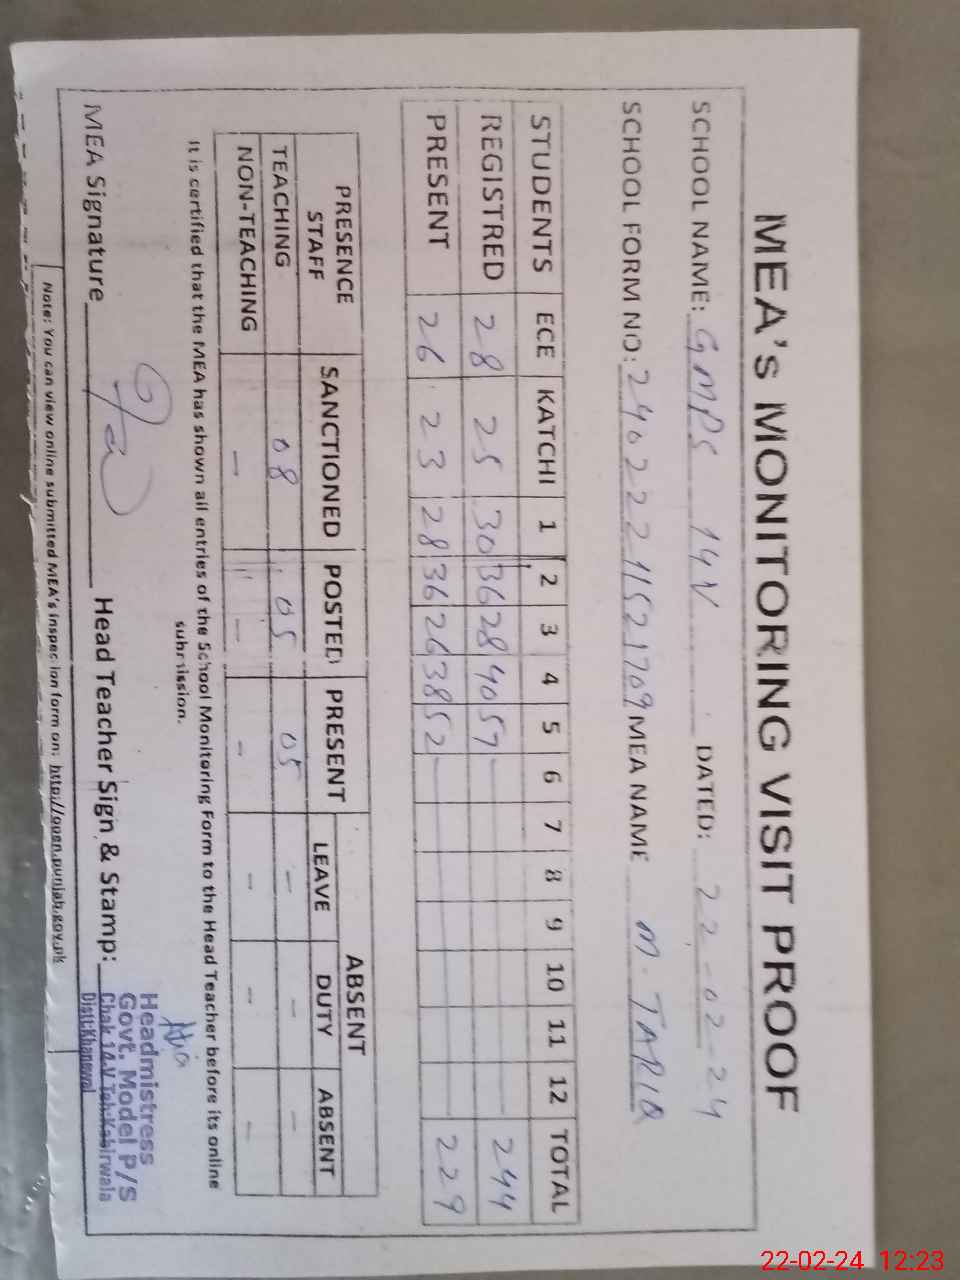 MEA's MONITORING VISIT PROOF
SCHOOL NAME: GMPS 14V DATED: 22-02-24
SCHOOL FORM NO: 24022211521709 MEA NAME M. TARIQ
STUDENTS ECE KATCHI 1 2 3 4 5 6 7 8 9 10 11 12 TOTAL
REGISTRED 28 25 30 36 28 40 57 244
PRESENT 26 23 28 36 26 38 52 229
PRESENCE STAFF SANCTIONED POSTED PRESENT ABSENT
LEAVE DUTY ABSENT
TEACHING 08 05 05 - - -
NON-TEACHING - - - - - -
It is certified that the MEA has shown all entries of the School Monitoring Form to the Head Teacher before its online
submission.
MEA Signature Head Teacher Sign & Stamp:
Headmistress
Govt. Model P/S
Chak 14-V Teh:Kabirwala
Distt:Khanewal
Note: You can view online submitted MEA's inspection form on: http://open.punjab.gov.pk
22-02-24 12:23